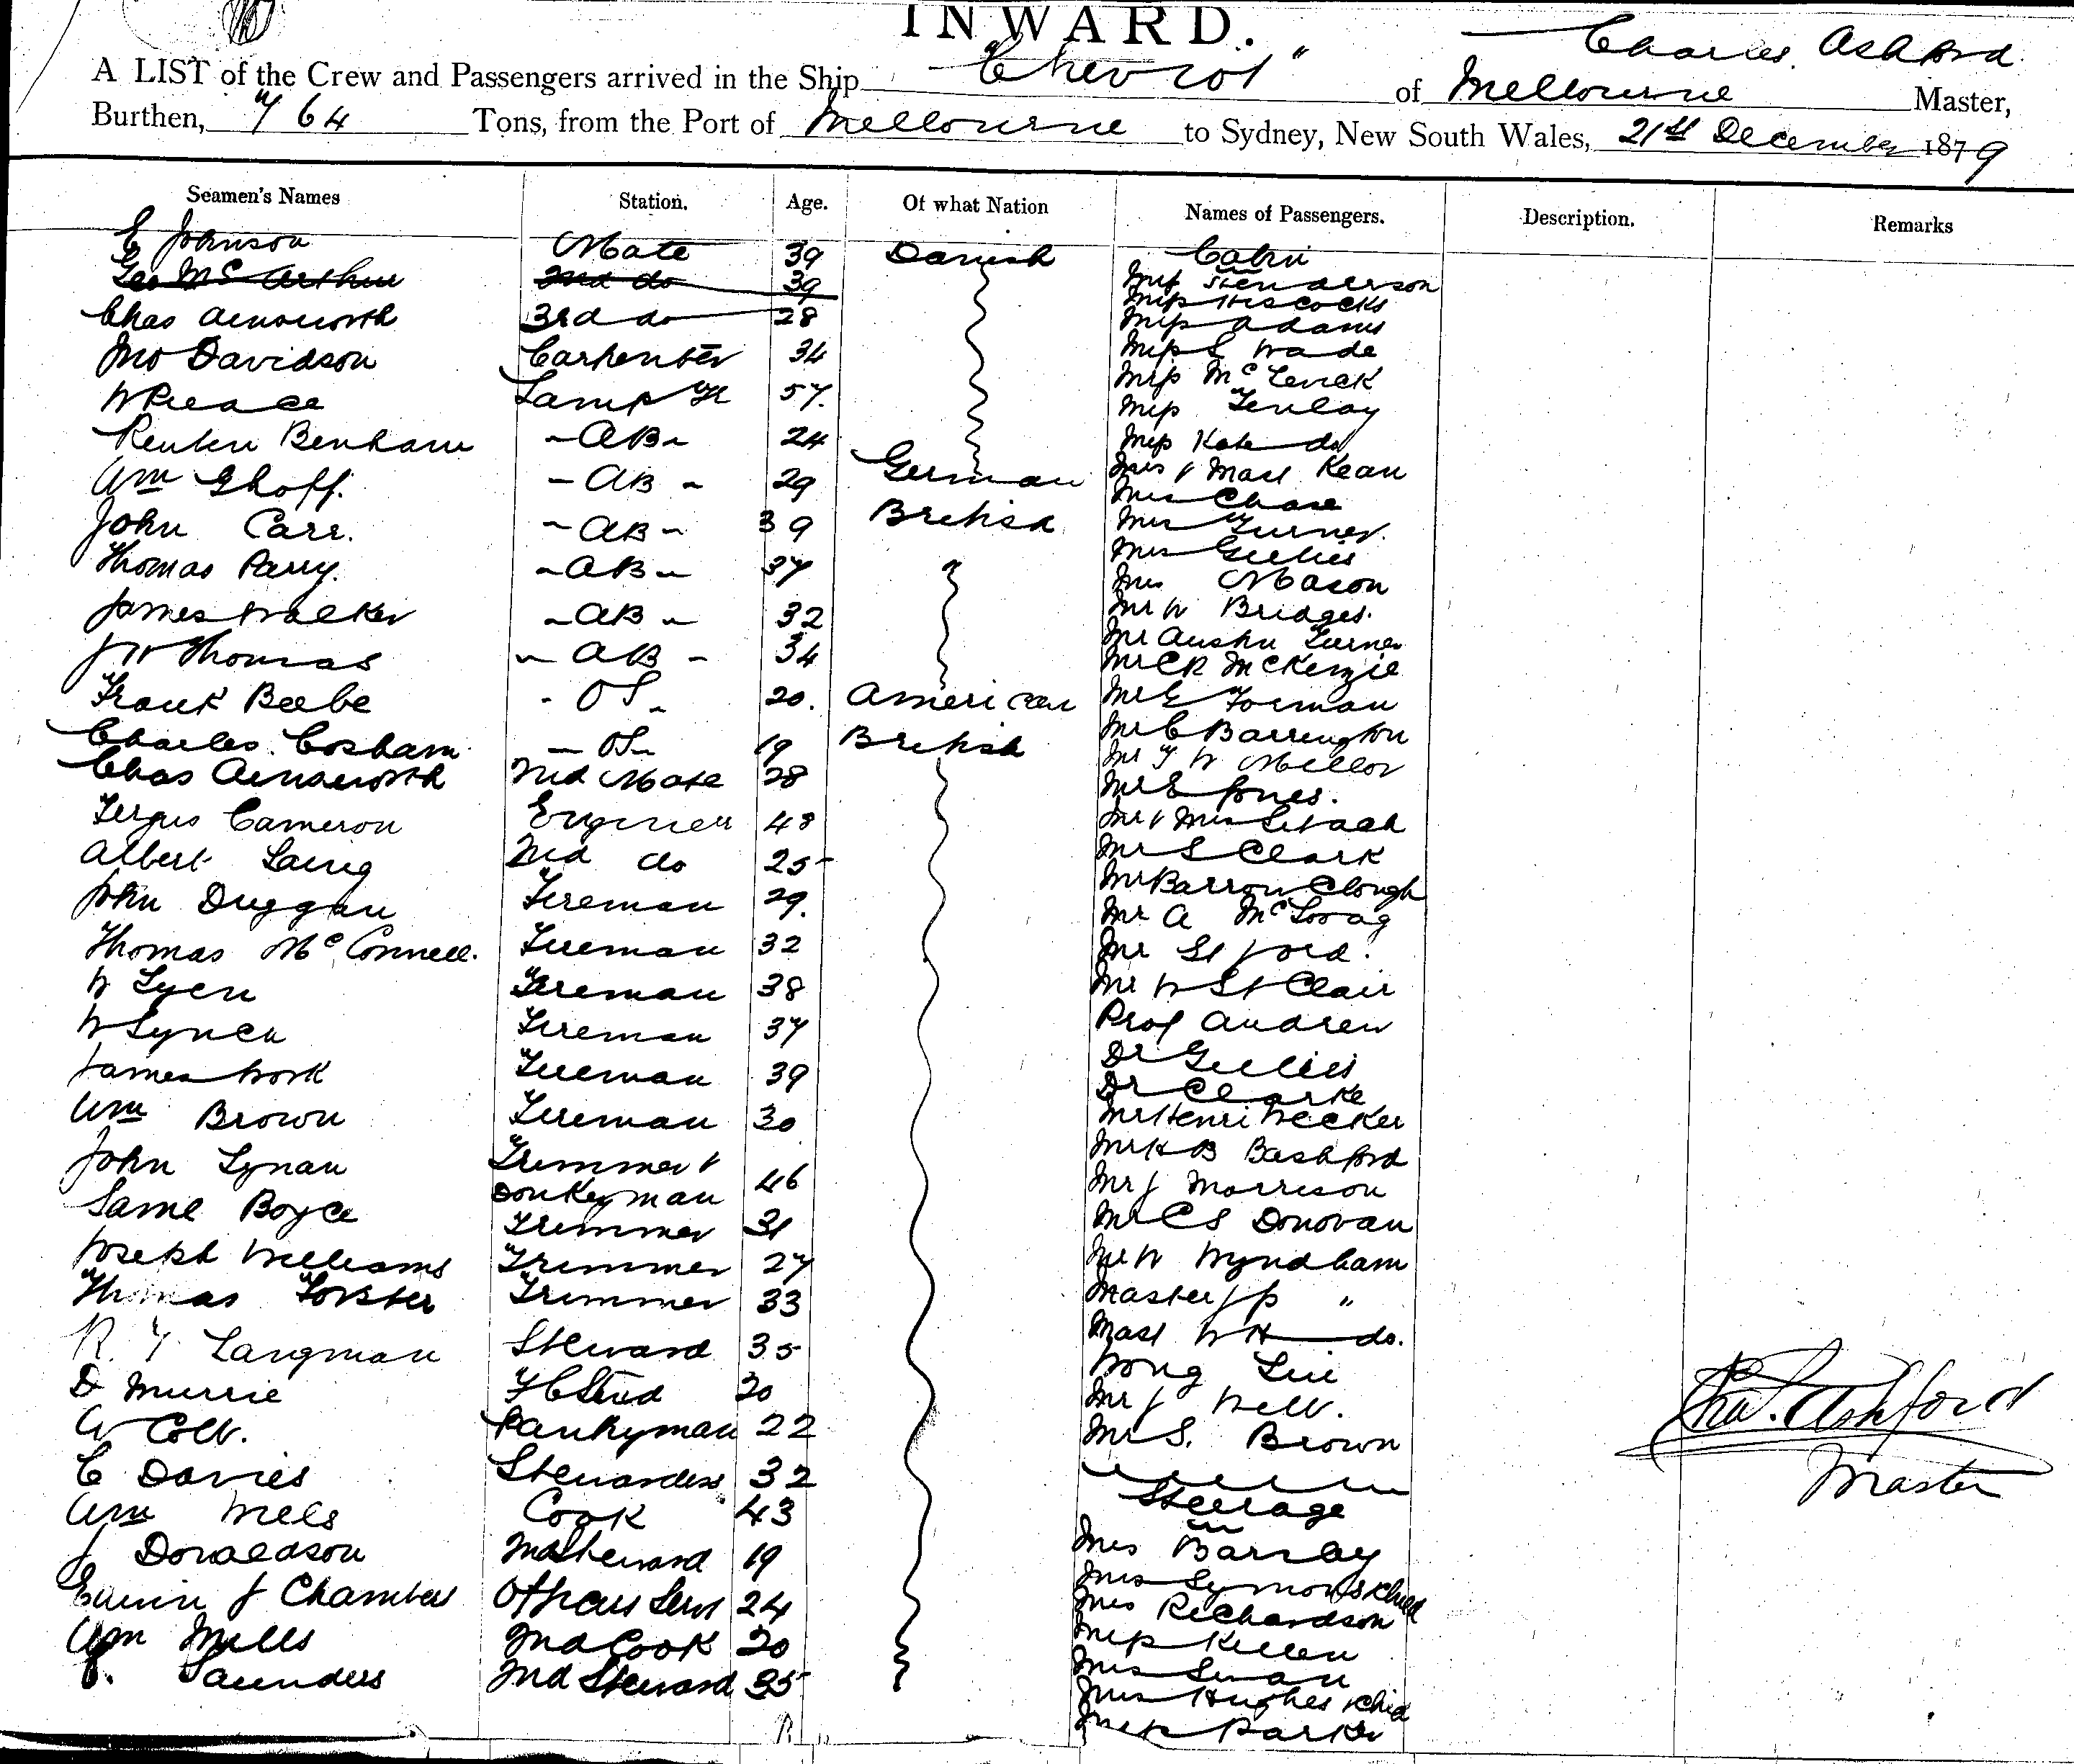 INWARD.
A LIST of the Crew and Passengers arrived in the Ship "Cheviot" of Melbourne Charles Ashford Master,
Burthen, 764 Tons, from the Port of Melbourne to Sydney, New South Wales, 21st December 1879
Seamen's Names Station. Age. Of what Nation Names of Passengers. Description. Remarks
E Johnson Mate 39 Danish Cabin
Geo McArthur 2nd do 39 Miss Henderson
Miss Hiscocks
Chas Ainsworth 3rd do 28 Miss Adams
Jno Davidson Carpenter 34 Miss S Wade
W Pearce Lamp Tr 57. Miss
Miss Finlay
Reuben Benham AB 24 Miss Kate do
Wm Ghoff. AB 29 German Mrs & Mast Kean
Mrs Chase
John Carr. AB 39 British Mrs Turner.
Mrs Gillies
Thomas Parry. AB 37 Mrs Mason
James Walker AB 32 Mr W Bridges.
Mr Austin Turner
J W Thomas AB 34 Mr C R McKenzie
Frank Beebe OS 20. American Mr E Forman
Mr C Barrington
Charles Cosham OS 19 British Mr T W Mellor
Chas Ainsworth 2nd Mate 28 Mr E Jones.
Fergus Cameron Engineer 48 Mr & Mrs
Albert Laing 2nd do 25 Mr S Clark
John Duggan Fireman 29. Mr Barrowclough
Mr A
Thomas McConnell. Fireman 32 Mr
W Lyen Fireman 38 Mr W St Clair
W Lynch Fireman 37 Prof Andrew
James Work Fireman 39 Dr Gillies
Dr Clarke
Wm Brown Fireman 30 Mr Henri Wecker
John Lynan Trimmer & Donkeyman 46 Mr H B Bashford
Mr J Morrison
Saml Boyce Trimmer 31 Mr C S Donovan
Joseph Williams Trimmer 27 Mr W Wyndham
Thomas Forster Trimmer 33 Master J P "
R. T Langman Steward 35 Mast W H do.
Wong Lin
D Murrie F C Stwd 20 Mr J Bell.
A Coll. Pantryman 22 Mr S. Brown
E Davies Stewardess 32
Steerage
Wm Mels Cook 43
Mrs Barnby
J Donaldson 2nd Steward 19 Mrs Symons & Child
Edwin J Chambers Officers Servt 24 Mrs Richardson
Wm Mills 2nd Cook 20 Miss Killen
Mrs Swan
J. Saunders 2nd Steward 35 Mrs Hughes & Chid
Miss Parker
Chas. Ashford
Master